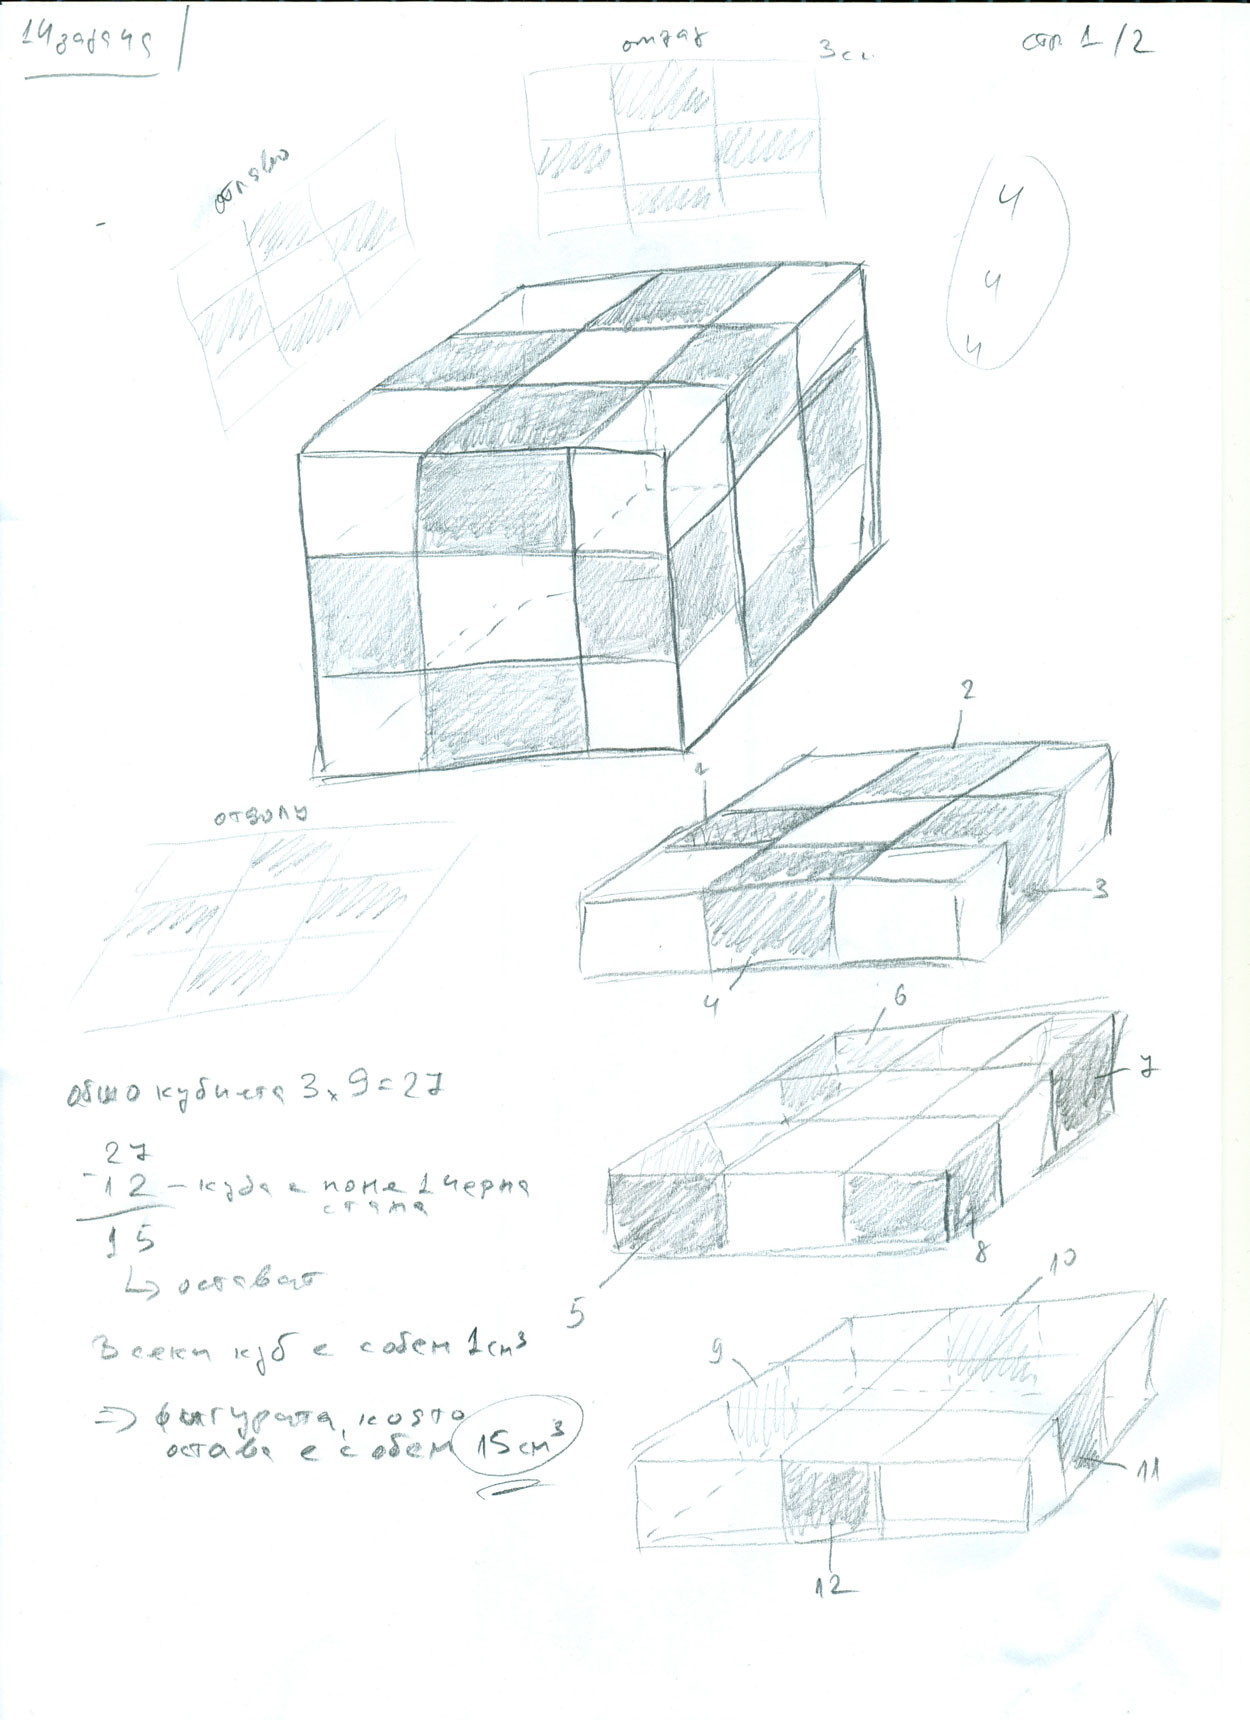 14 задача
отзад
3 см
стр 1/2
отляво
4
4
4
2
1
3
4
отдолу
6
7
5
8
общо кубчета 3 x 9 = 27
27
- 12 - куба с поне 1 черна
стена
15
↳ остават
Всеки куб е с обем 1 см³
⇒ фигурата, която
остава е с обем 15 см³
10
9
11
12